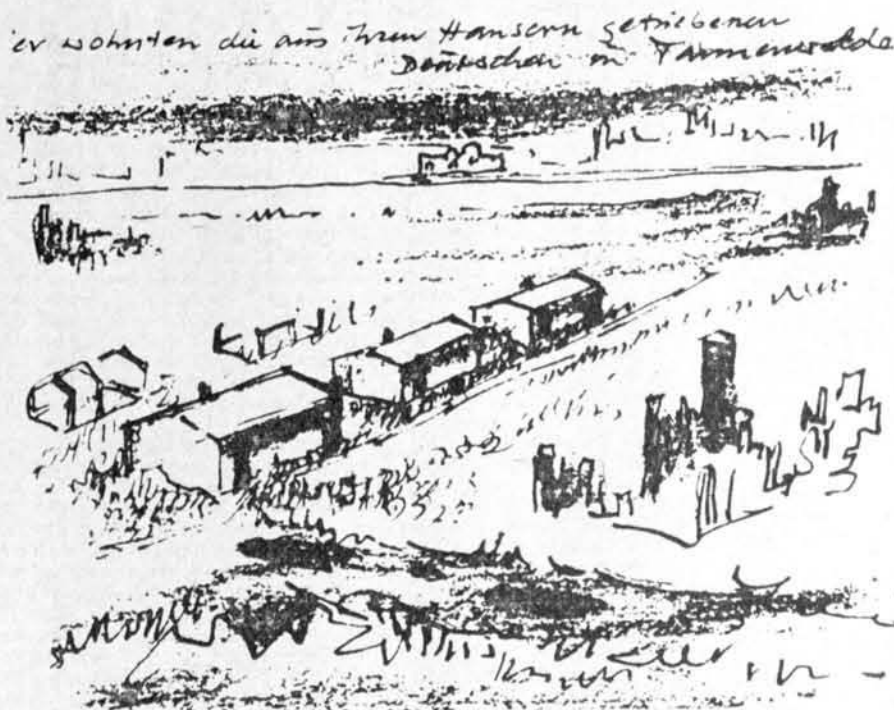 er wohnten die aus ihren Häusern getriebenen
Deutschen in Tannenwalde